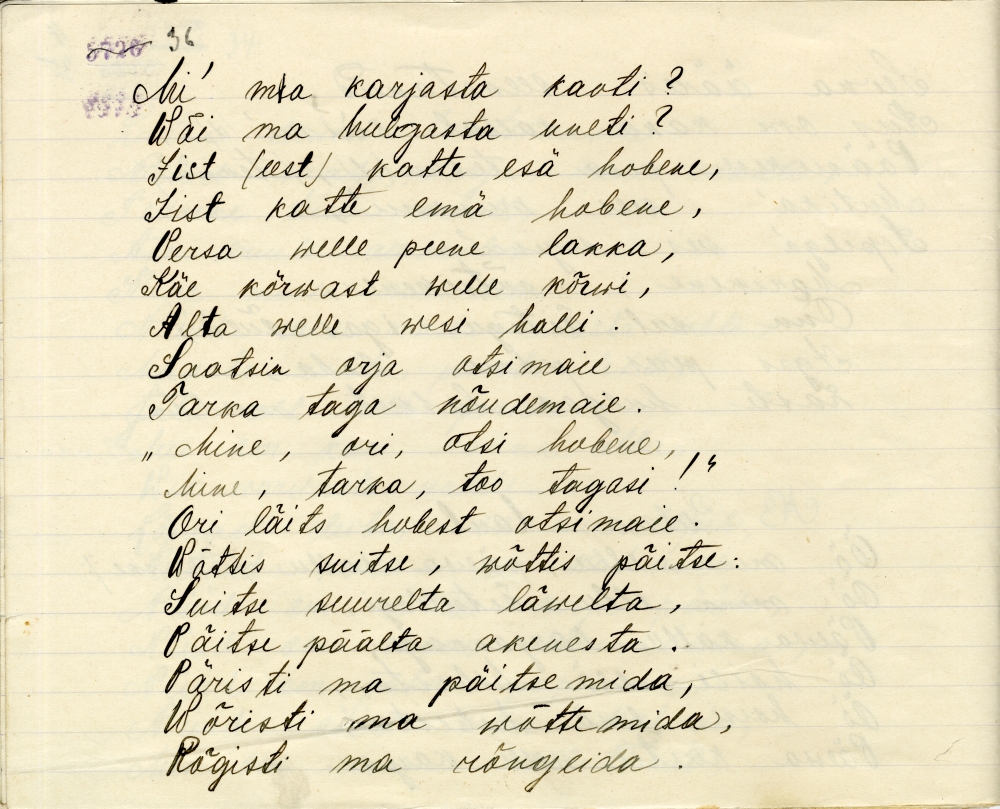 5726 36
Mi' ma karjasta kaoti?
Wäi ma hulgasta uneti?
Sist (eest) katte esä hobene,
Sist katte emä hobene,
Persa welle peene lakka,
Käe kõrwast welle kõrwi,
Alta welle wesi halli.
Saatsin orja otsimaie
Tarka taga nõudemaie.
„Mine, ori, otsi hobene,
Mine, tarka, too tagasi!"
Ori läits hobest otsimaie.
Wõttis suitse, wõttis päitse:
Suitse suurelta läwelta,
Päitse päälta akenesta.
Päristi ma päitsemida,
Wõristi ma wõttemida,
Rõgisti ma rõngeida.